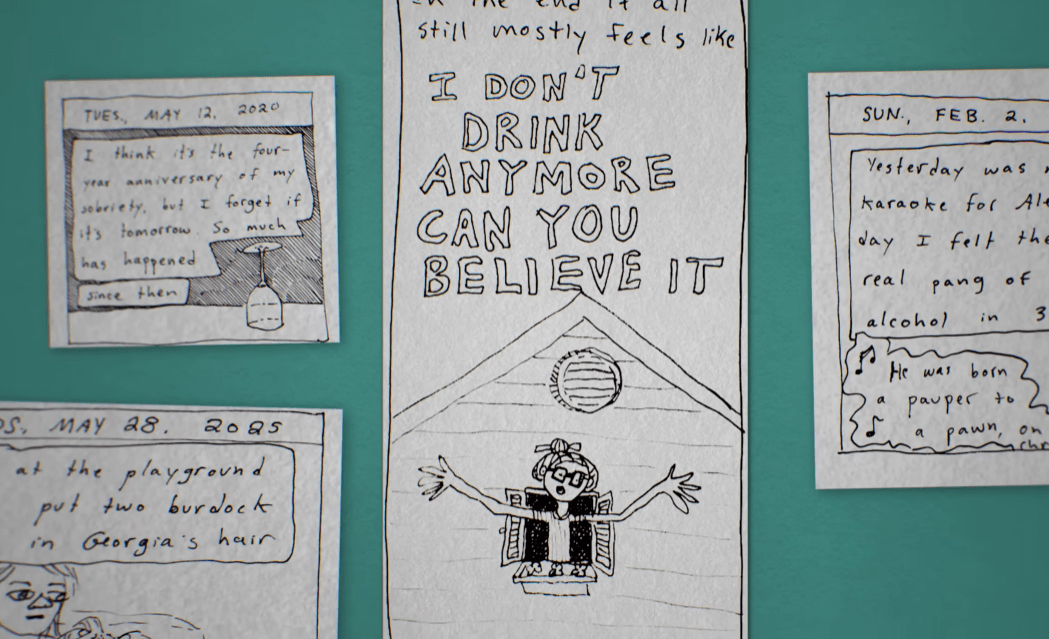 in the end it all
still mostly feels like
I DON'T
DRINK
ANYMORE
CAN YOU
BELIEVE IT
TUES., MAY 12, 2020
I think it's the four-
year anniversary of my
sobriety, but I forget if
it's tomorrow. So much
has happened
since then
MAY 28. 2025
at the playground
put two burdock
in Georgia's hair
SUN., FEB. 2.
Yesterday was
karaoke for
day I felt
real pang of
alcohol in 3
He was born
a pauper to
a pawn, on